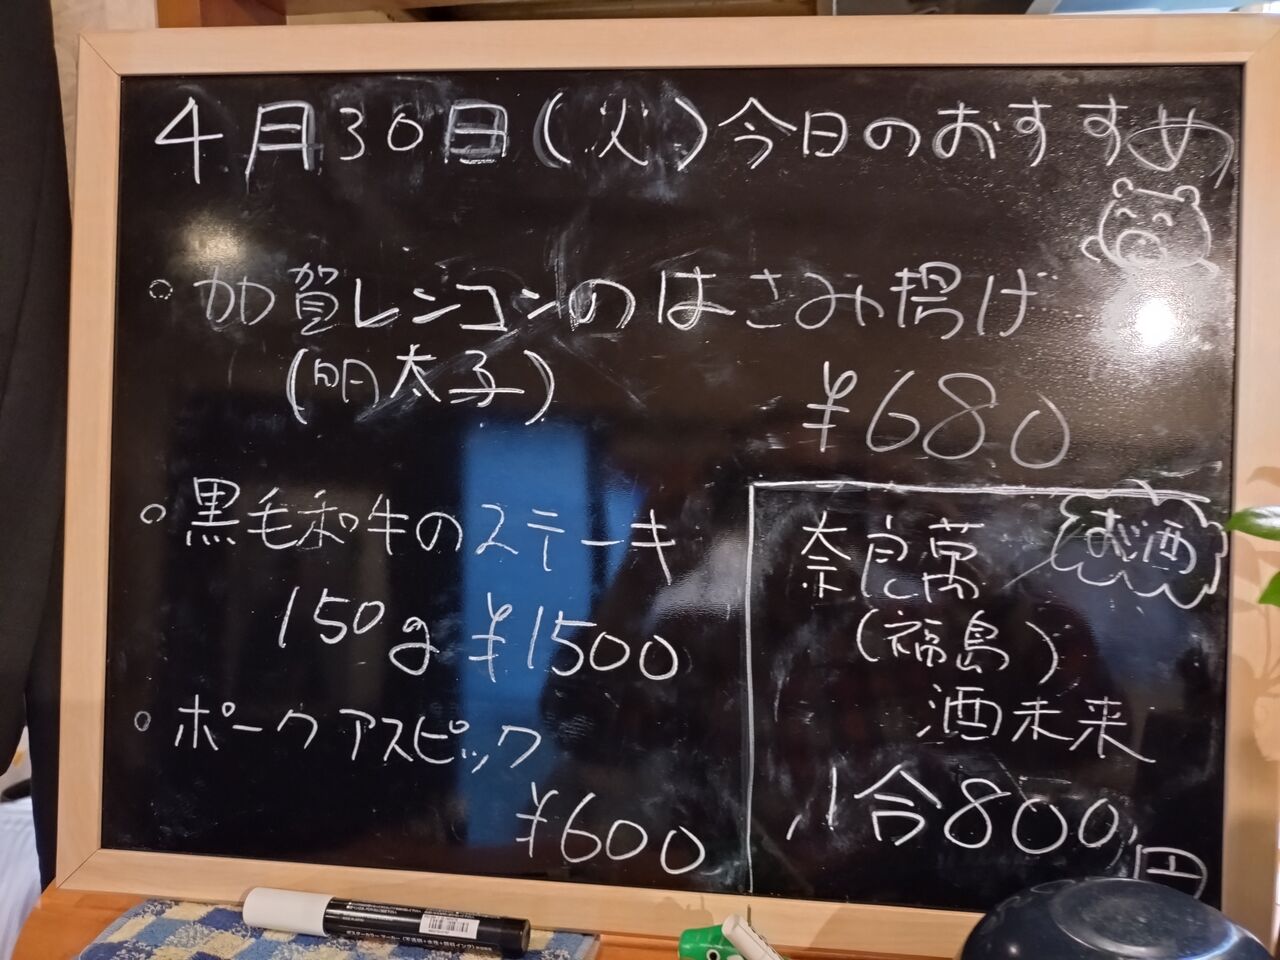 4月30日(火)今日のおすすめ
。加賀レンコンのはさみ揚げ
(明太子)
¥680
。黒毛和牛のステーキ
150g ¥1500
。ポークアスピック
¥600
お酒
奈良萬
(福島)
酒未来
1合800円